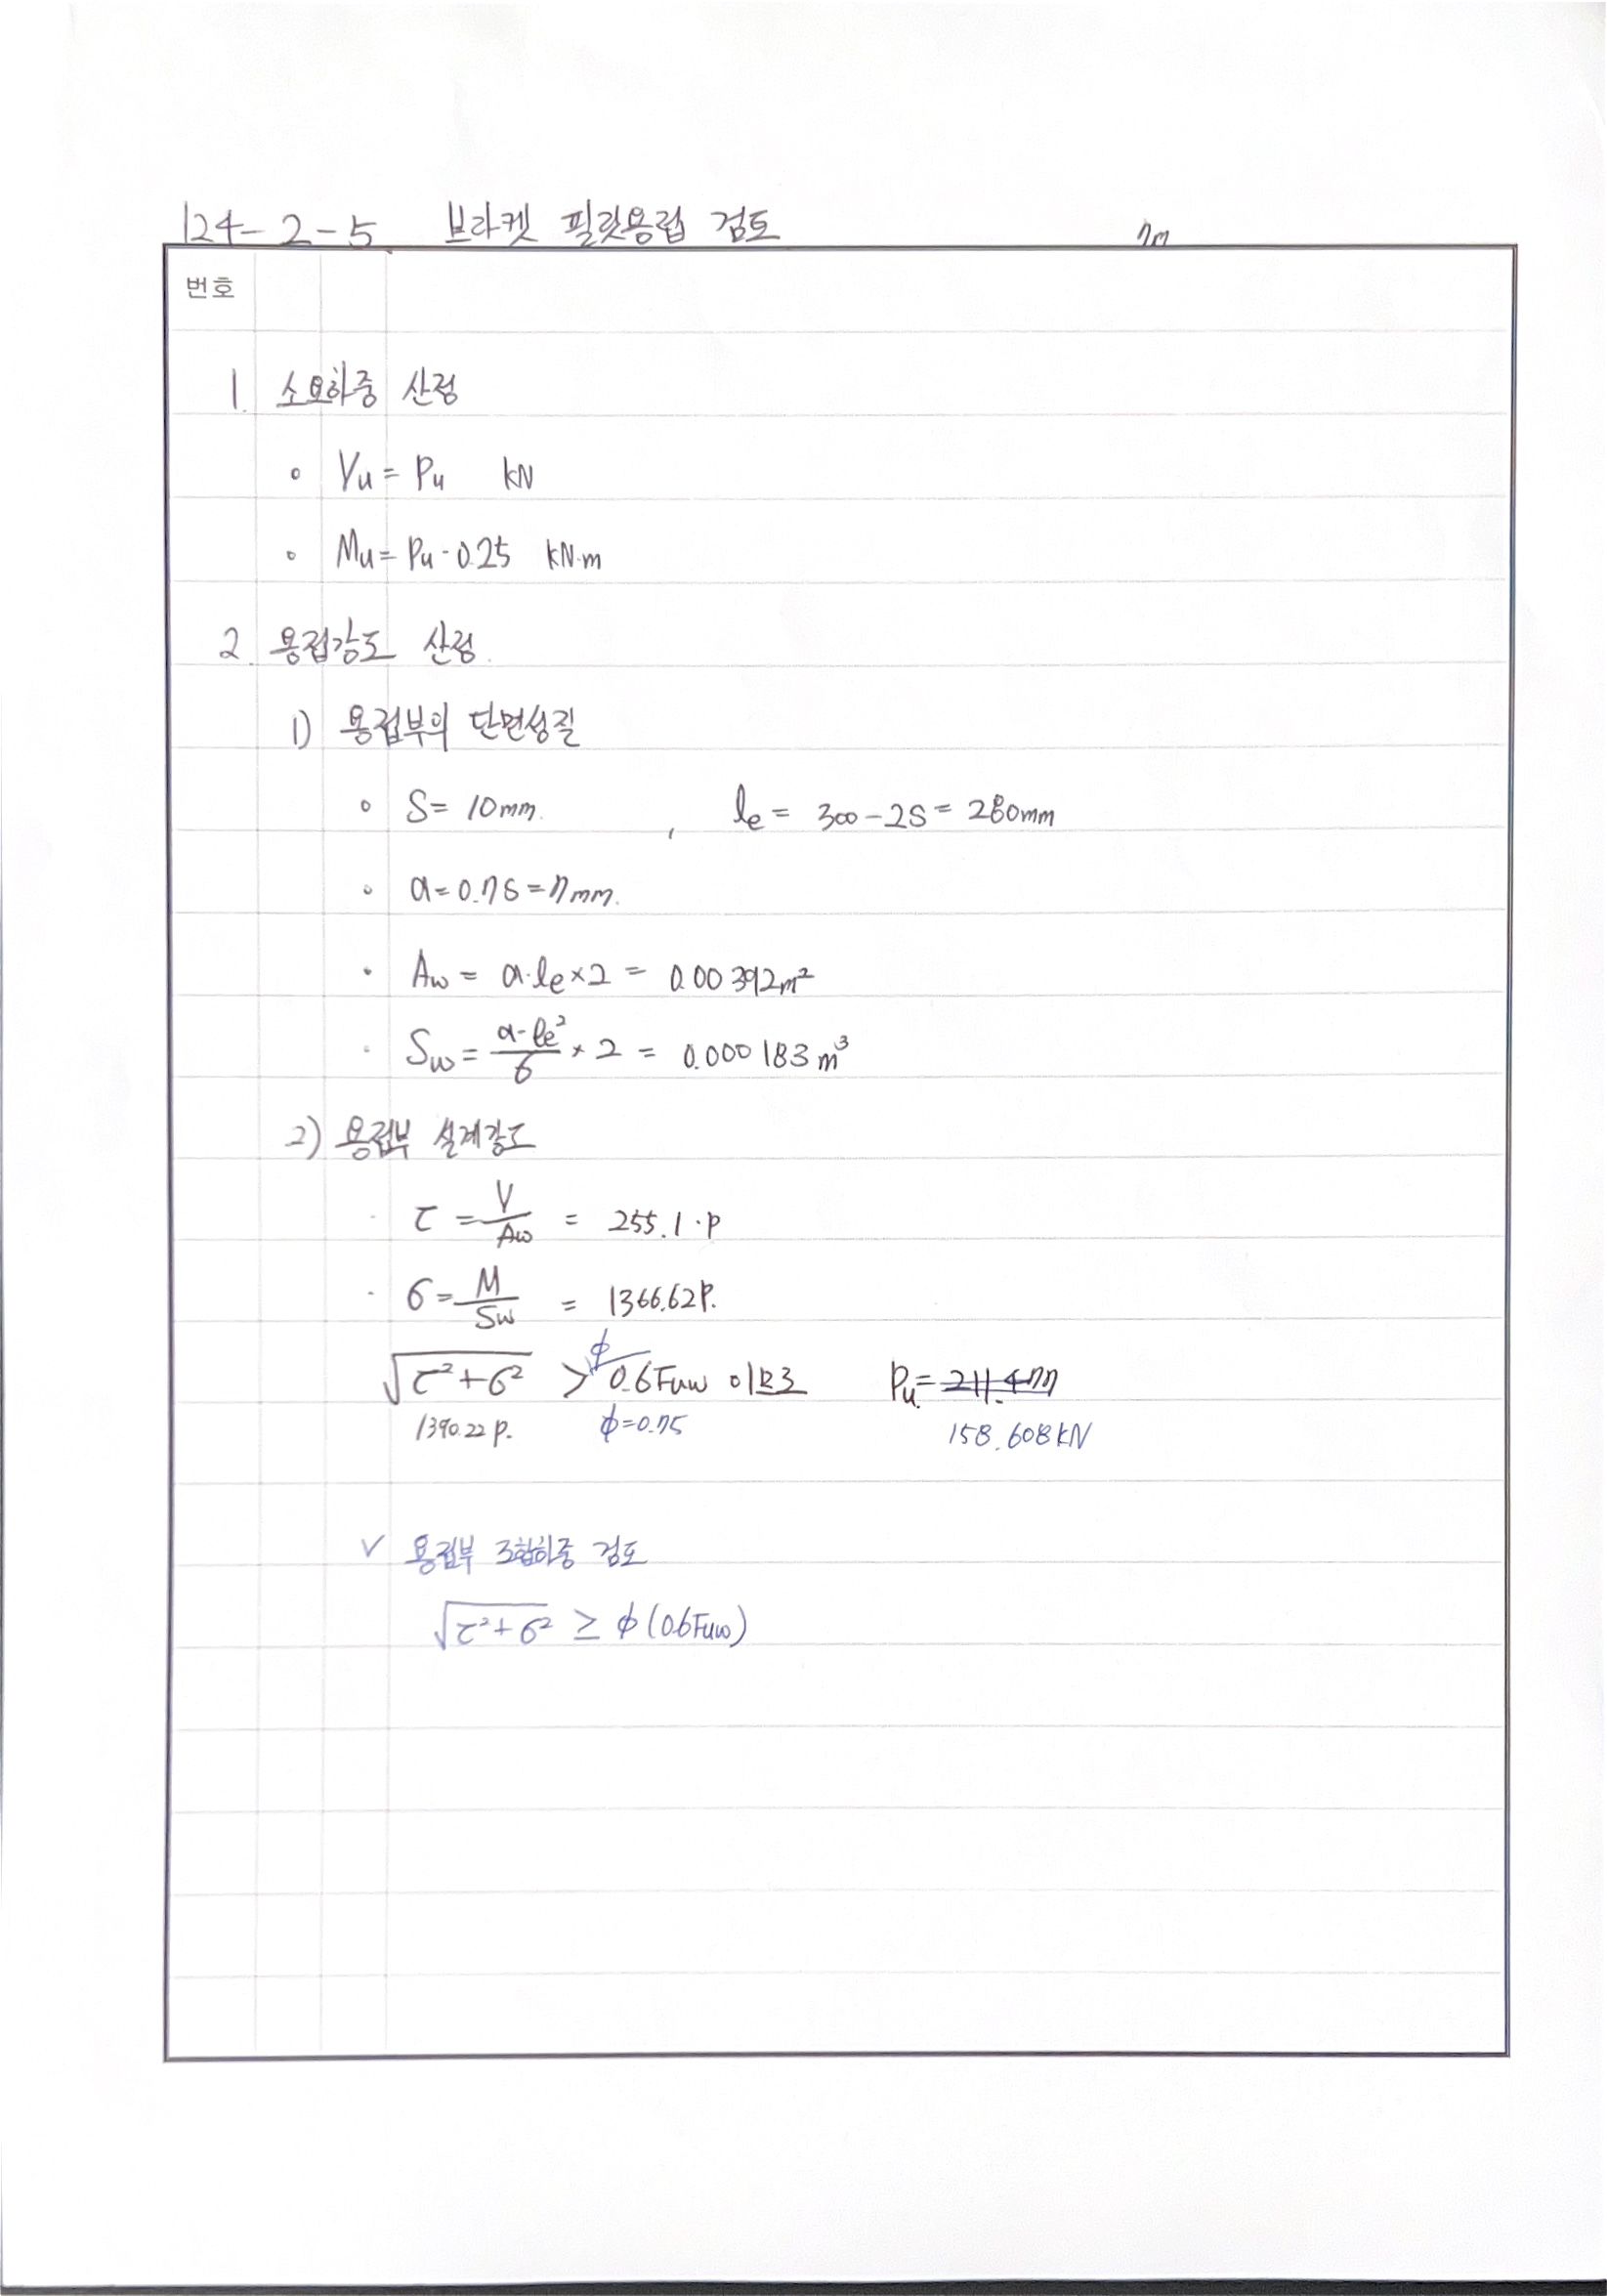 124-2-5 브라켓 필릿용접 검토 7m
번호
1. 소요하중 산정
∘ Vu = Pu kN
∘ Mu = Pu · 0.25 kN·m
2. 용접강도 산정.
1) 용접부의 단면성질
∘ S = 10mm. , le = 300 - 2S = 280mm
∘ a = 0.7S = 7mm.
• Aw = a·le × 2 = 0.00392m²
· Sw = a·le²/6 × 2 = 0.000183m³
2) 용접부 설계강도
· τ = V/Aw = 255.1·P
· σ = M/Sw = 1366.62P.
√τ²+σ² > ϕ 0.6Fuw 이므로 Pu = 211.477
1390.22P. ϕ=0.75 158.608kN
√ 용접부 조합하중 검토
√τ²+σ² ≥ ϕ(0.6Fuw)